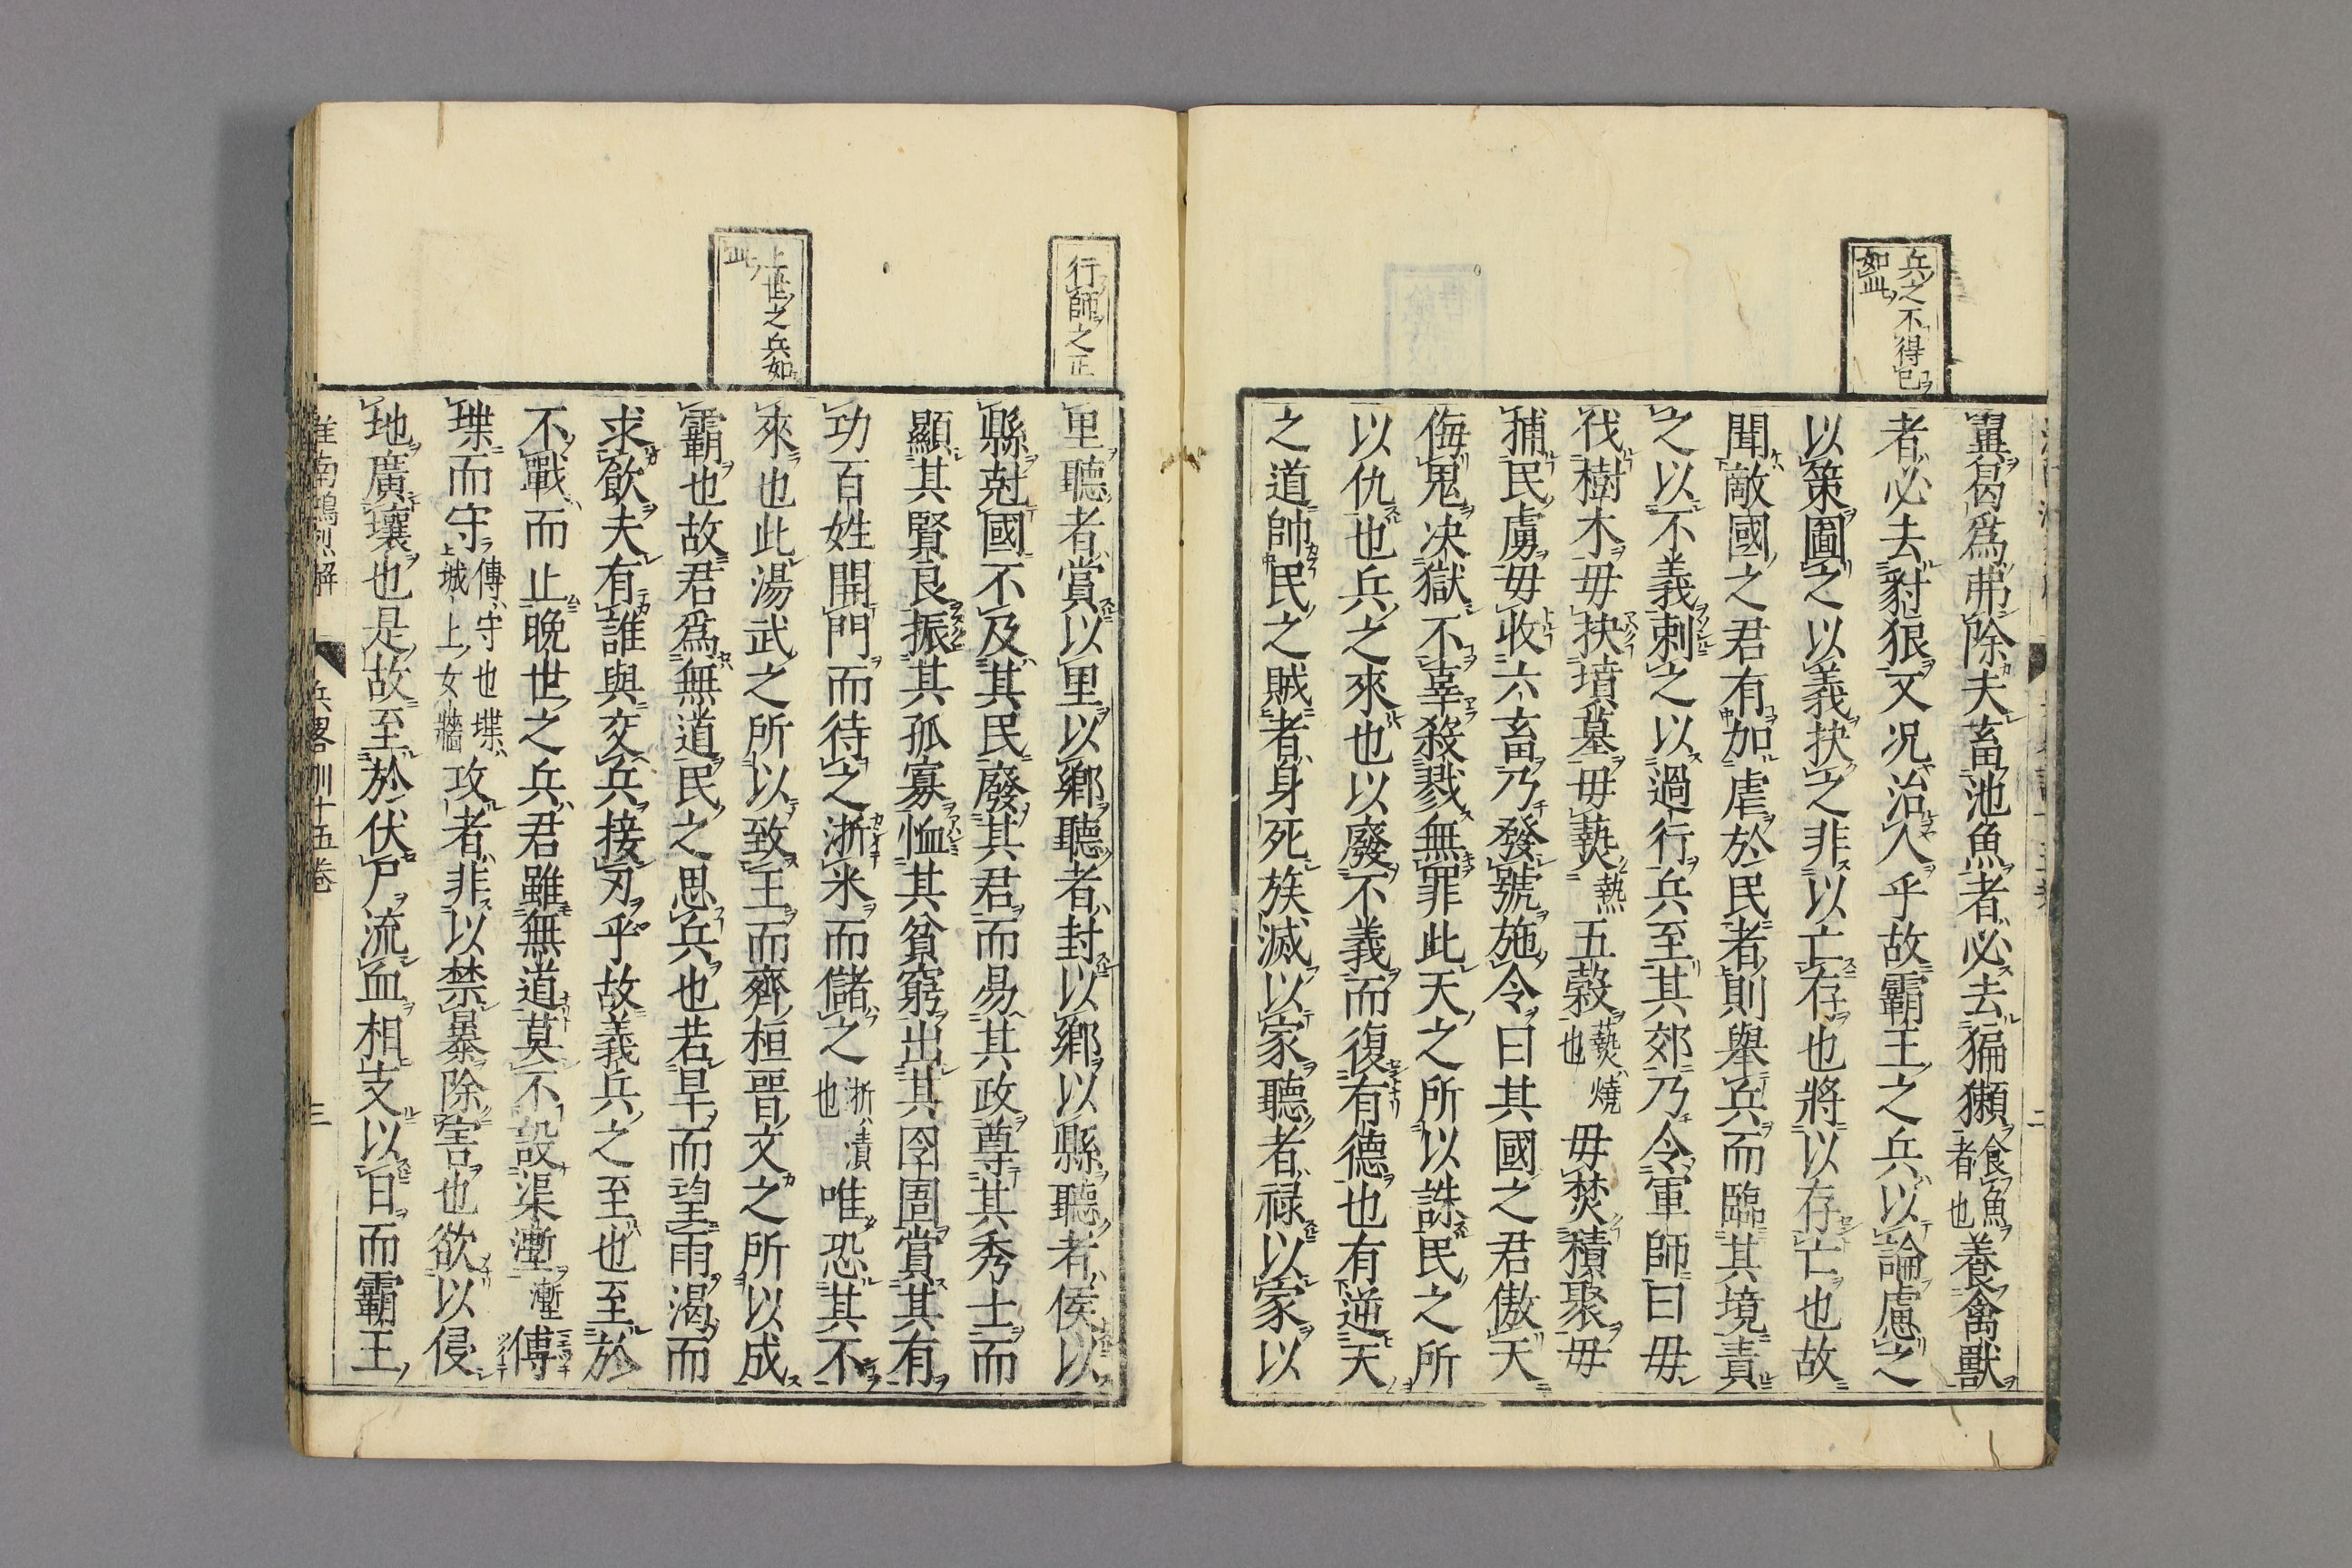 兵之不得已
如此
翼曷爲弗除夫畜池魚者必去猵獺食魚者也養禽獸
者必去豺狼又况治人乎故霸王之兵以論慮之
以策圖之以義扶之非以亡存也將以存亡也故
聞敵國之君有加虐於民者則舉兵而臨其境責
之以不義刺之以過行兵至其郊乃令軍師曰毋
伐樹木毋抉墳墓毋爇熱五穀爇燒也毋焚積聚毋
捕民虜毋收六畜乃發號施令曰其國之君傲天
侮鬼决獄不辜殺戮無罪此天之所以誅民之所
以仇也兵之來也以廢不義而復有德也有逆天
之道帥民之賊者身死族滅以家聽者禄以家以
行師之正
上世之兵如
此
里聽者賞以里以鄉聽者封以鄉以縣聽者侯以
縣尅國不及其民廢其君而易其政尊其秀士而
顯其賢良振其孤寡恤其貧窮出其囹圄賞其有
功百姓開門而待之淅米而儲之淅漬也唯恐其不
來也此湯武之所以致王而齊桓晋文之所以成
霸也故君爲無道民之思兵也若旱而望雨渴而
求飲夫有誰與交兵接刃乎故義兵之至也至於
不戰而止晩世之兵君雖無道莫不設渠壍壍傅
堞而守傅守也堞城上女牆攻者非以禁暴除害也欲以侵
地廣壤也是故至於伏尸流血相支以日而霸王
淮南鴻烈解 兵畧訓十五卷 三